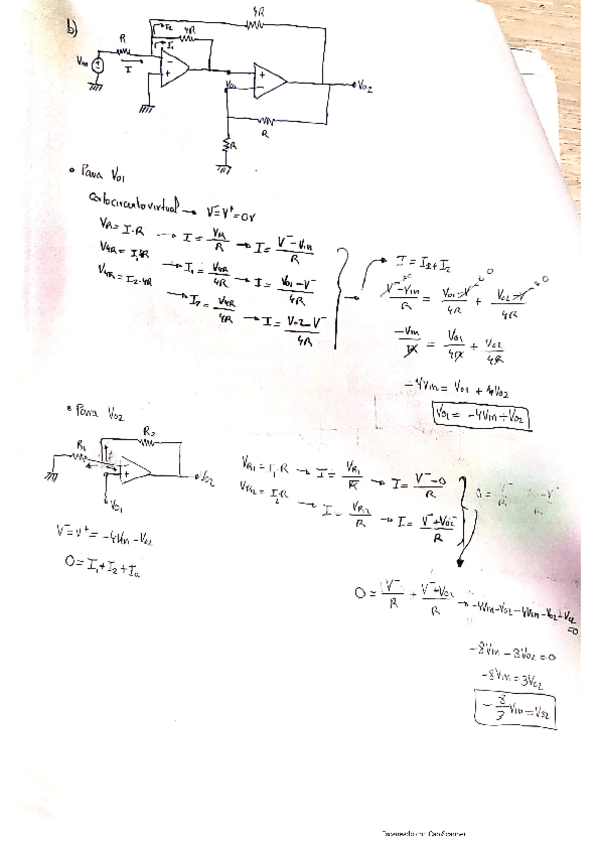 b)
4R
R
I2
4R
I1
Vin
I
-
+
+
-
Vo1
Vo2
R
R
• Para Vo1
Cortocircuito virtual → V⁻=V⁺=0V
VR = I·R → I = VR/R → I = (V⁻-Vin)/R
V4R = I1·4R → I1 = V4R/4R → I = (Vo1-V⁻)/4R
V4R = I2·4R → I2 = V4R/4R → I = (Vo2-V⁻)/4R
I = I1+I2
(V⁻-Vin)/R = (Vo1-V⁻)/4R + (Vo2-V⁻)/4R
-Vin/R = Vo1/4R + Vo2/4R
-4Vin = Vo1 + Vo2
Vo1 = -4Vin - Vo2
• Para Vo2
R2
R1
-
+
Vo2
Vo1
V⁻=V⁺= -4Vin - Vo2
0 = I1+I2+
VR1 = I1·R → I = VR1/R → I = (V⁻-0)/R
VR2 = I2·R → I = VR2/R → I = (V⁻-Vo2)/R
0 = V⁻/R + (V⁻-Vo2)/R → -4Vin-Vo2-4Vin-Vo2-Vo2 =0
-8Vin - 3Vo2 = 0
-8Vin = 3Vo2
-8/3 Vin = Vo2
Escaneado con CamScanner